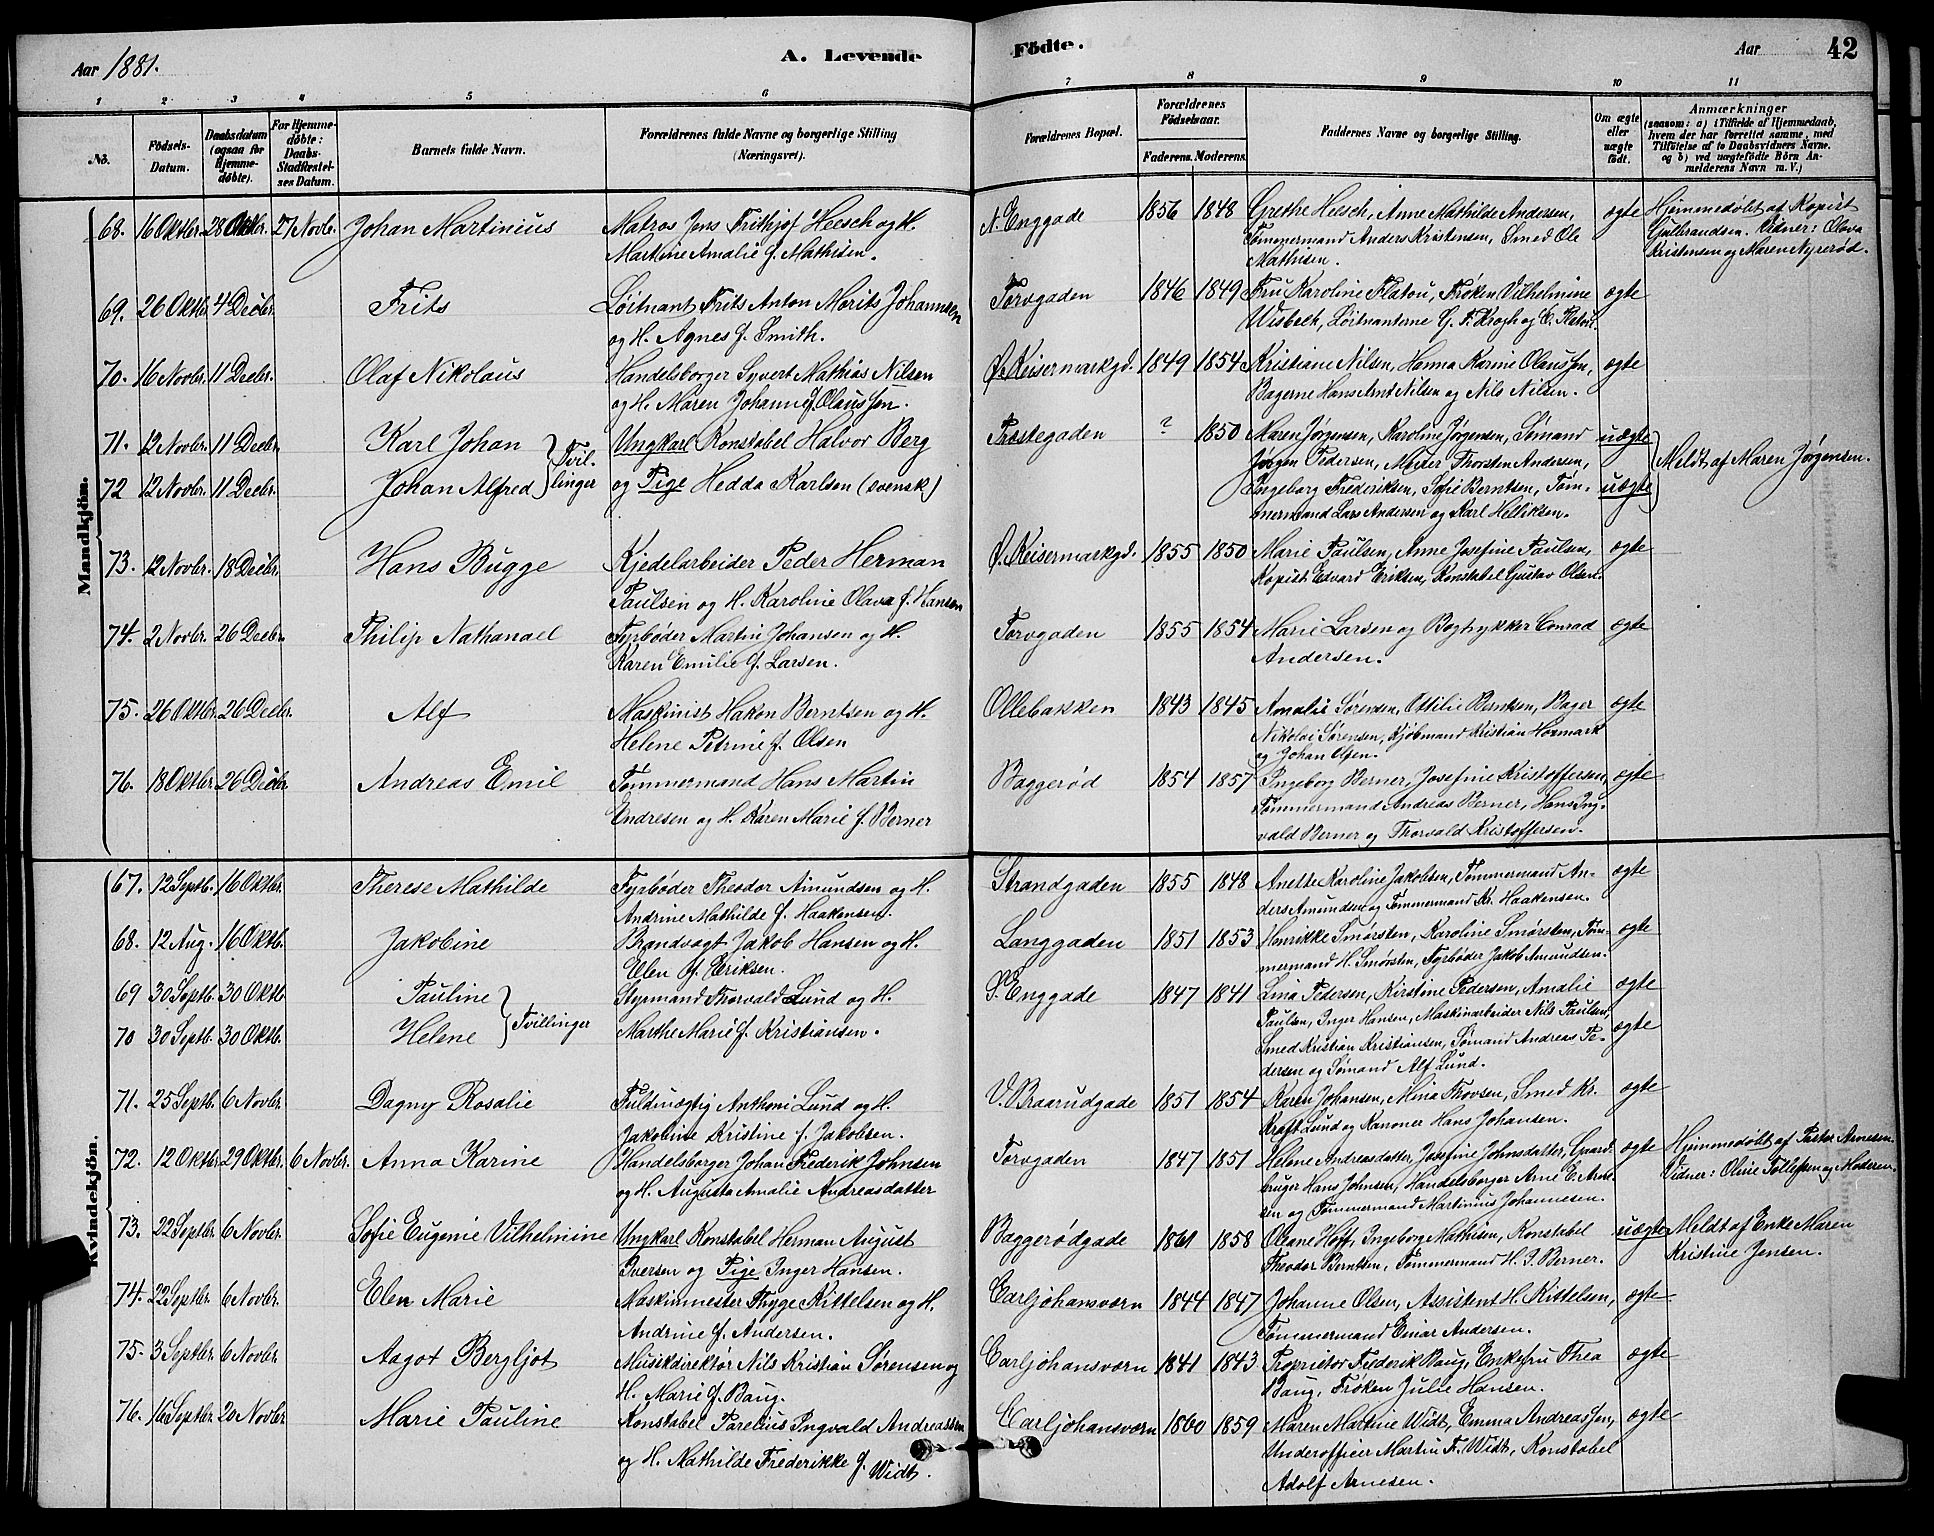 Aar 1881.
A. Levende
Födte.
Aar
42
1 2 3 4 5 6 7 8 9 10 11
No.
Födsels-
Datum.
Daabsdatum
(ogsaa for
Hjemme-
døbte).
For Hjemme-
døbte:
Daabs-
Stadfæstel-
ses Datum.
Barnets fulde Navn.
Forældrenes fulde Navne og borgerlige Stilling
(Næringsvei).
Forældrenes Bopæl.
Forældrenes
Födselsaar.
Faderens. Moderens.
Faddernes Navne og borgerlige Stilling.
Om ægte
eller
uægte
født.
Anmærkninger
(saasom: a) i Tilfælde af Hjemmedaab,
hvem der har forrettet samme, med
Tilföielse af to Daabsvidners Navne.
og b) ved uægtefödte Börn An-
melderens Navn m. V.)
Mandkjön.
68. 16 Oktbr. 28 Oktbr. 27 Novbr. Johan Martinius
Matros Jens Frithjof Heesch og H.
Martine Amalie f. Mathisen.
N. Enggade 1856 1848
Grethe Heesch, Anne Mathilde Andersen,
Tømmermand Anders Kristensen, Smed Ole
Mathisen.
ægte
Hjemmedøbt af Kopist
Gulbrandsen. Vidner: Olava
Kristensen og Maren Nyrerød.
69. 26 Oktbr. 4 Decbr. Frits
Löitnant Frits Anton Morits Johannsen
og H. Agnes f. Smith.
Torvgaden 1846 1849
Fru Karoline Flatou, Frøken Vilhelmine
Wisbeck, Löitnanterne G. F. Krogh og C. Flatou.
ægte
70. 16 Novbr. 11 Decbr. Olaf Nikolaus
Handelsborger Syvert Mathias Nilsen
og H. Maren Johanne f. Olaussen.
Ø. Keisermarkgd. 1849 1854
Kristiane Nilsen, Hanna Karine Olaussen,
Bagerne Hans Amt Nilsen og Nils Nilsen.
ægte
71. 12 Novbr. 11 Decbr. Karl Johan
72 12 Novbr. 11 Decbr. Johan Alfred
Tvil-
linger
Ungkarl Konstabel Halvor Berg
og Pige Hedda Karlsen (svensk)
Præstegaden ? 1850
Maren Jørgensen, Karoline Jørgensen, Sømand
Jørgen Pedersen, Thorsten Andersen,
Ingeborg Frederiksen, Sofie Berntsen, Tøm-
mermand Lars Andersen og Karl Helliksen.
uægte
uægte
Meldt af Maren Jørgensen.
73. 12 Novbr. 18 Decbr. Hans Bugge
Kjedelarbeider Peder Herman
Paulsen og H. Karoline Olava f. Hansen
Ø. Keisermarkgd. 1855 1850
Marie Paulsen, Anne Josefine Paulsen,
Kopist Edvard Eriksen, Konstabel Gustav Olsen.
ægte
74. 2 Novbr. 26 Decbr. Philip Nathanael
Fyrbøder Martin Johansen og H.
Karen Emilie f. Larsen.
Torvgaden 1855 1854
Marie Larsen og Bogtrykker Conrad
Andersen.
ægte
75. 26 Oktbr. 26 Decbr. Alf
Maskinist Hakon Berntsen og H.
Helene Petrine f. Olsen
Ollebakken 1843 1845
Amalie Sørensen, Ottilie Berntsen, Bager
Nikolai Sørensen, Kjøbmand Kristian Hoxmark
og Johan Olsen.
ægte
76. 18 Oktbr. 26 Decbr. Andreas Emil
Tømmermand Hans Martin
Endresen og H. Karen Marie f. Berner
Baggerød 1854 1857
Ingeborg Berner, Josefine Kristoffersen,
Tømmermand Andreas Berner, Hans Ing-
vald Berner og Thorvald Kristoffersen.
ægte
Kvindekjön.
67. 12 Septb. 16 Oktbr. Therese Mathilde
Fyrbøder Theodor Amundsen og H.
Andrine Mathilde f. Haakensen.
Strandgaden 1855 1848
Anette Karoline Jakobsen, Tømmermand An-
ders Amundsen og Tømmermand Kr. Haakensen.
ægte
68. 12 Aug. 16 Oktb. Jakobine
Brandvagt Jakob Hansen og H.
Elen f. Eriksen.
Langgaden 1851 1853
Henrikke Smørsten, Karoline Smørsten, Tøm-
mermand H. Smørsten, Fyrbøder Jakob Amundsen.
ægte
69 30 Septb. 30 Oktb. Pauline
70 30 Septb. 30 Oktb. Helene
Tvillinger
Styrmand Thorvald Lund og H.
Marthe Marie f. Kristiansen.
S. Enggade 1847 1841
Lina Pedersen, Kirstine Pedersen, Amalie
Paulsen, Inger Hansen, Maskinarbeider Nils Paulsen,
Smed Kristian Kristiansen, Sømand Andreas Pe-
dersen og Sømand Alf Lund.
ægte
ægte
71. 25 Septb. 6 Novbr. Dagny Rosalie
Fuldmægtig Anthoni Lund og H.
Jakobine Kristine f. Jakobsen.
V. Braarudgade 1851 1854
Karen Johansen, Mina Thovsen, Smed Kr.
Kraft Lund og Kanoner Hans Johansen.
ægte
72. 12 Oktbr. 29 Oktbr. 6 Novbr. Anna Karine
Handelsborger Johan Frederik Johnsen
og H. Augusta Amalie Andreasdatter
Torvgaden 1847 1851
Helene Andreasdatter, Josefine Johnsdatter, Gaard-
bruger Hans Johnsen, Handelsborger Arne E. Arne-
sen og Tømmermand Martinius Johannesen.
ægte
Hjemmedøbt af Pastor Arnesen.
Vidner: Olvie Tollefsen og Moderen.
73. 22 Septbr. 6 Novbr. Sofie Eugenie Vilhelmine
Ungkarl Konstabel Herman August
Iversen og Pige Inger Hansen.
Baggerødgade 1861 1858
Oleane Hoff, Ingeborg Mathisen, Konstabel
Theodor Berntsen, Tømmermand H. J. Berner.
uægte
Meldt af Enke Maren
Kristine Jensen.
74. 22 Septbr. 6 Novbr. Elen Marie
Maskinmester Thyge Kittelsen og H.
Andrine f. Andersen.
Carljohansværn 1844 1847
Johanne Olsen, Assistent H. Kittelsen,
Tømmermand Einar Andersen.
ægte
75. 3 Septbr. 6 Novbr. Aagot Bergljot
Musikdirektør Nils Kristian Sørensen og
H. Marie f. Baug.
Carljohansværn 1841 1843
Proprietør Frederik Baug, Enkefru Thea
Baug, Frøken Julie Hansen.
ægte
76. 16 Septbr. 20 Novbr. Marie Pauline
Konstabel Parelius Ingvald Andreassen
og H. Mathilde Frederikke f. Widt.
Carljohansværn 1860 1859
Maren Martine Widt, Emma Andreassen,
Underofficer Martin F. Widt, Konstabel
Adolf Arnesen.
ægte